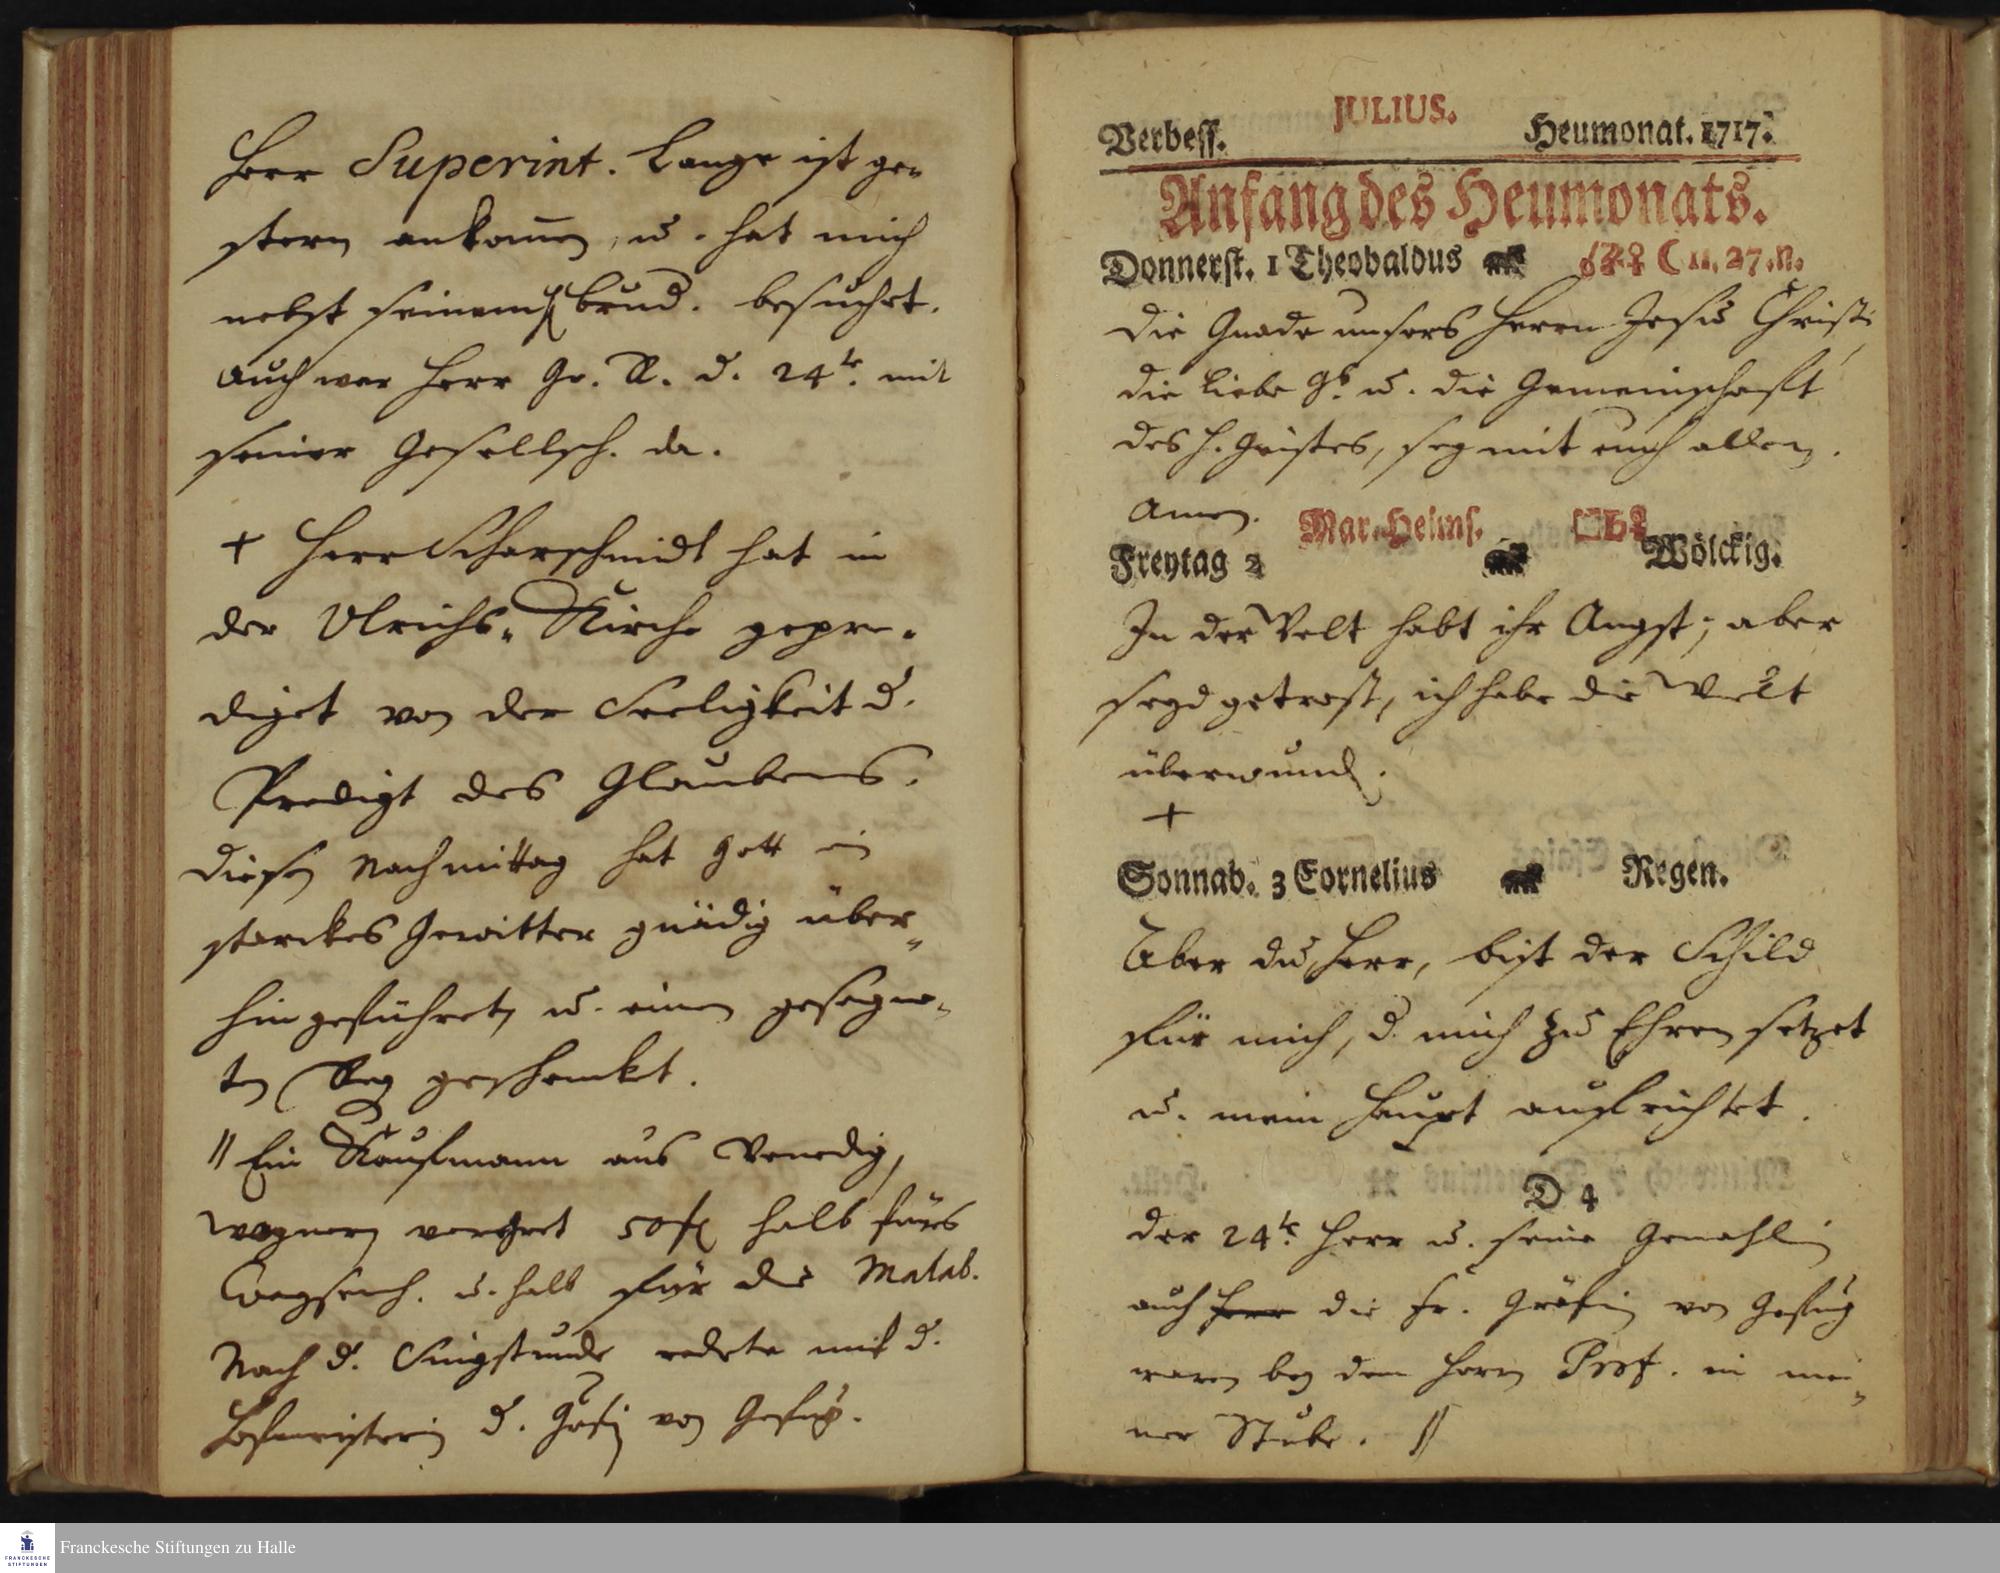 Herr Superint. Lange ist ge-
stern ankom̅en, u. hat mich
nebst seinem brud. besuchet.
Auch war Herr Gr. R. d. 24te. mit
seiner Gesellsch. da.
+ Herr Scharschmidt hat in
der Ulrichs-Kirche gepre-
diget von der Seeligkeit d.
Predigt des Glaubens.
diesen Nachmittag hat Gott ein
starckes Gewitter gnädig über-
hin geführet, u. einen gesegne-
ten Reg geschenckt.
// Ein Kaufmann aus Venedig,
Wagner verehret 50 halb fürs
Waysenh. u. halb für die Malab.
Nach d. Singstunde redete mit d.
Hofmeisterin d. Gräfin von
JULIUS.
Verbess. Heumonat. 1717.
Anfang des Heumonats.
Donnerst. 1 Theobaldus ☌♃♀ ☾ 11. 27. N.
Die Gnade unsers Herrn Jesu Christi,
die Liebe Gs. u. die Gemeinschaft
des H. Geistes, sey mit euch allen.
Amen.
Mar. Heims. □♄♀
Freytag 2 Wölckig.
In der Welt habt ihr Angst; aber
seyd getrost, ich habe die Welt
überwund.
+
Sonnab. 3 Cornelius Regen.
Aber du, Herr, bist der Schild
für mich, d. mich zu Ehren setzet
u. mein Haupt aufrichtet.
D 4
der 24te. Herr u. seine Gemahlin
auch die Fr. Gräfin von
waren bey dem Herrn Prof. in mei-
ner Stube. //
FRANCKESCHE
STIFTUNGEN
Franckesche Stiftungen zu Halle